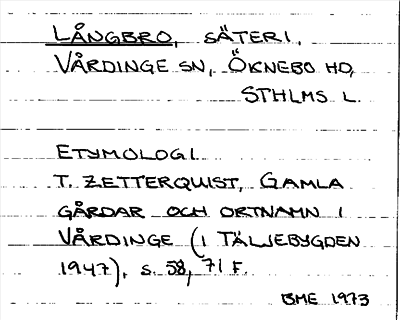 LÅNGBRO, SÄTERI,
VÅRDINGE SN, ÖKNEBO HD,
STHLMS L.
ETYMOLOGI
T. ZETTERQUIST, GAMLA
GÅRDAR OCH ORTNAMN I
VÅRDINGE (I TÄLJEBYGDEN
1947), S. 58, 71 F.
BME 1973